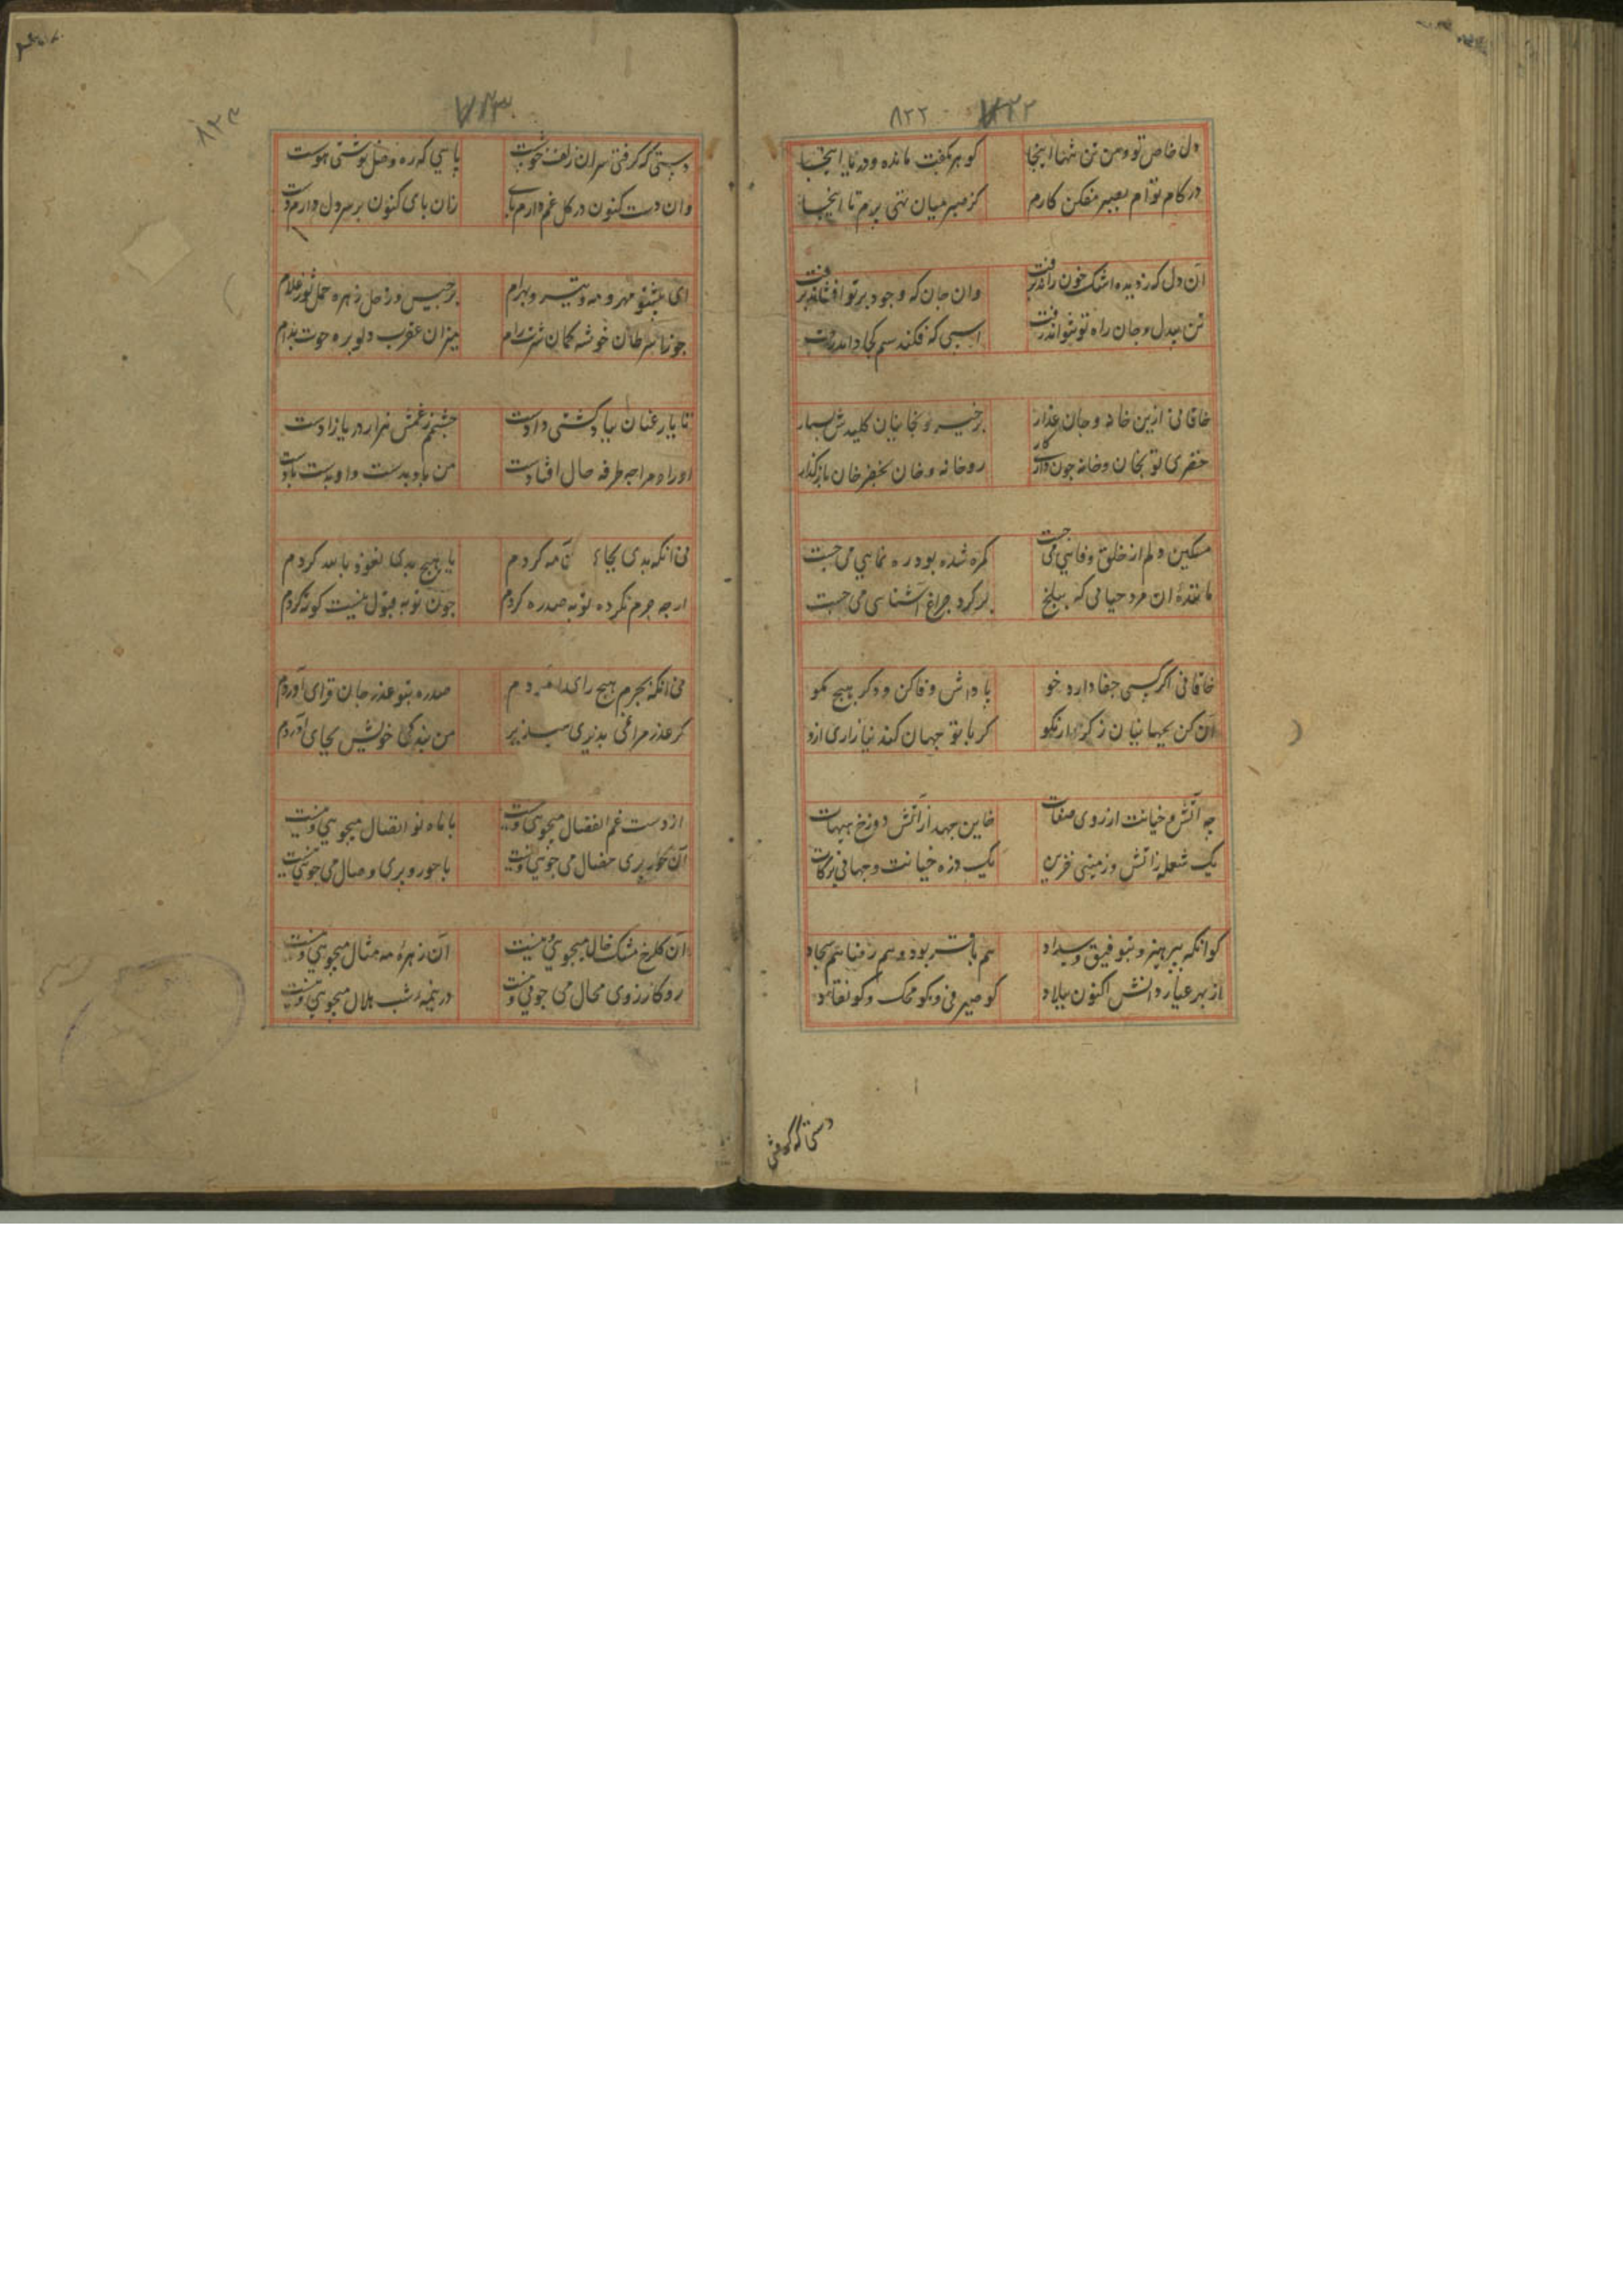 ۸۲۲ ۷۲۲
دل خاص تو و من تن تنها اینجا
کوهر بکفت مانده و دریا اینجا
در کام توام بصبر مفکن کارم
کز صبر میان تهی برم تا اینجا
آن دل که ز دیده اشک خون راند برفت
وان جان که وجود بر تو افشاند برفت
تن بیدل و جان راه تو نتواند رفت
اسبی که فکند سم کجا داند رفت
خاقانی ازین خانه و جان غدار
برخیز و بخانیان کلیدش بسپار
خضری تو بخان و خانه چون داری کار
رو خانه و خان بخضرخان باز گذار
مسکین دلم از خلق وفایی می جست
کمره شده بود ره نمایی می جست
ماننده آن مرد حیامی که ببلخ
بر کرد چراغ آشنایی می جست
خاقانی اکر کسی جفا دارد خو
پاداش وفا کن و دکر هیچ مکو
آن کن بجهانیان ز کردار نکو
کر با تو جهان کند نیازاری ازو
چه آتش و خیانت از روی صفات
خاین جهد از آتش دوزخ هیهات
یک شعله ز آتش و زمینی خرمن
یک ذره خیانت و جهانی برکات
کو آنکه بپرهیز و بتوفیق و سداد
هم باقر بود و هم رضا هم سجاد
از بهر عیار دانش اکنون ببلاد
کو صیرفی و کو محک و کو نقاد
دستی که گرفتی
۷۲۳
۸۲۳
دستی که کرفتی سر آن زلف چو شست
پایی که ره وصل نوشتی پیوست
وان دست کنون در کل غم دارم پای
زان پای کنون بر سر دل دارم دست
ای بنده تو مهر و مه و تیر و بهرام
برجیس و زحل زهره حمل ثور غلام
جوزا سرطان خوشه کمان شیرت رام
میزان عقرب دلو بره حوت بدام
تا یار عنان بباد و کشتی دادست
چشمم ز غمش هزار دریا زادست
او را و مرا چه طرفه حال افتادست
من باد بدست و او بدست بادست
نی آنکه بدی بجای آن مه کردم
یا هیچ بدی نعوذ بالله کردم
ار چه جرم نکرده توبه صد ره کردم
چون توبه قبول نیست کوته کردم
نی آنکه بجرم هیچ رای آوردم
صد ره بتو عذر جان فزای آوردم
کر عذر مرا نمی پذیری مپذیر
من بندکی خویش بجای آوردم
از دست غم انفصال میجویی و نیست
با ماه نو اتصال میجویی و نیست
آن حور پری خصال می جویی و نیست
با حور و پری وصال می جویی و نیست
آن کلرخ مشک خال میجویی و نیست
آن زهره مه مثال میجویی و نیست
رو کارزوی محال می جویی و نیست
در نیمه شب هلال میجویی و نیست